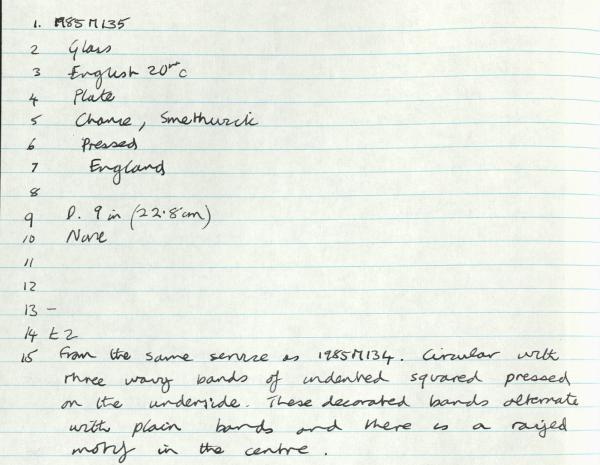 1. 1985M135
2 Glass
3 English 20th c
4 Plate
5 Chance, Smethwick
6 Pressed
7 England
8
9 D. 9 in (22.8cm)
10 None
11
12
13 -
14 £2
15 From the same service as 1985M134. Circular with
three wavy bands of indented squared pressed
on the underside. These decorated bands alternate
with plain bands and there is a raised
motif in the centre.